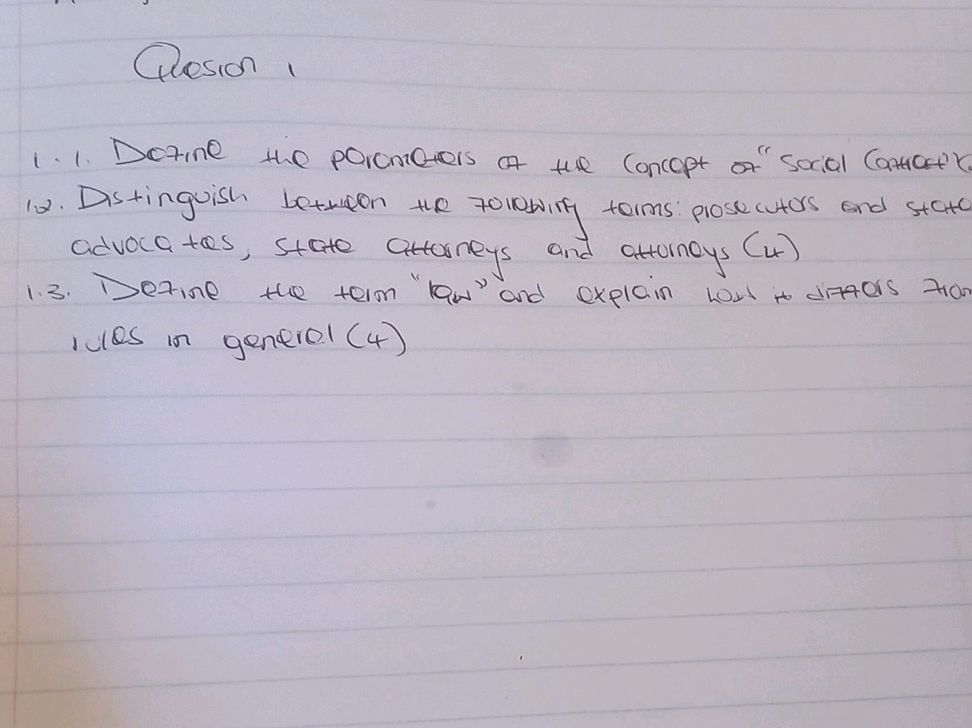 Quesion 1
1.1. Define the parameters of the concept of "Social Contract"
1.2. Distinguish between the following terms: prosecutors and state
advocates, state attorneys and attorneys (4)
1.3. Define the term "law" and explain how it differs from
rules in general (4)